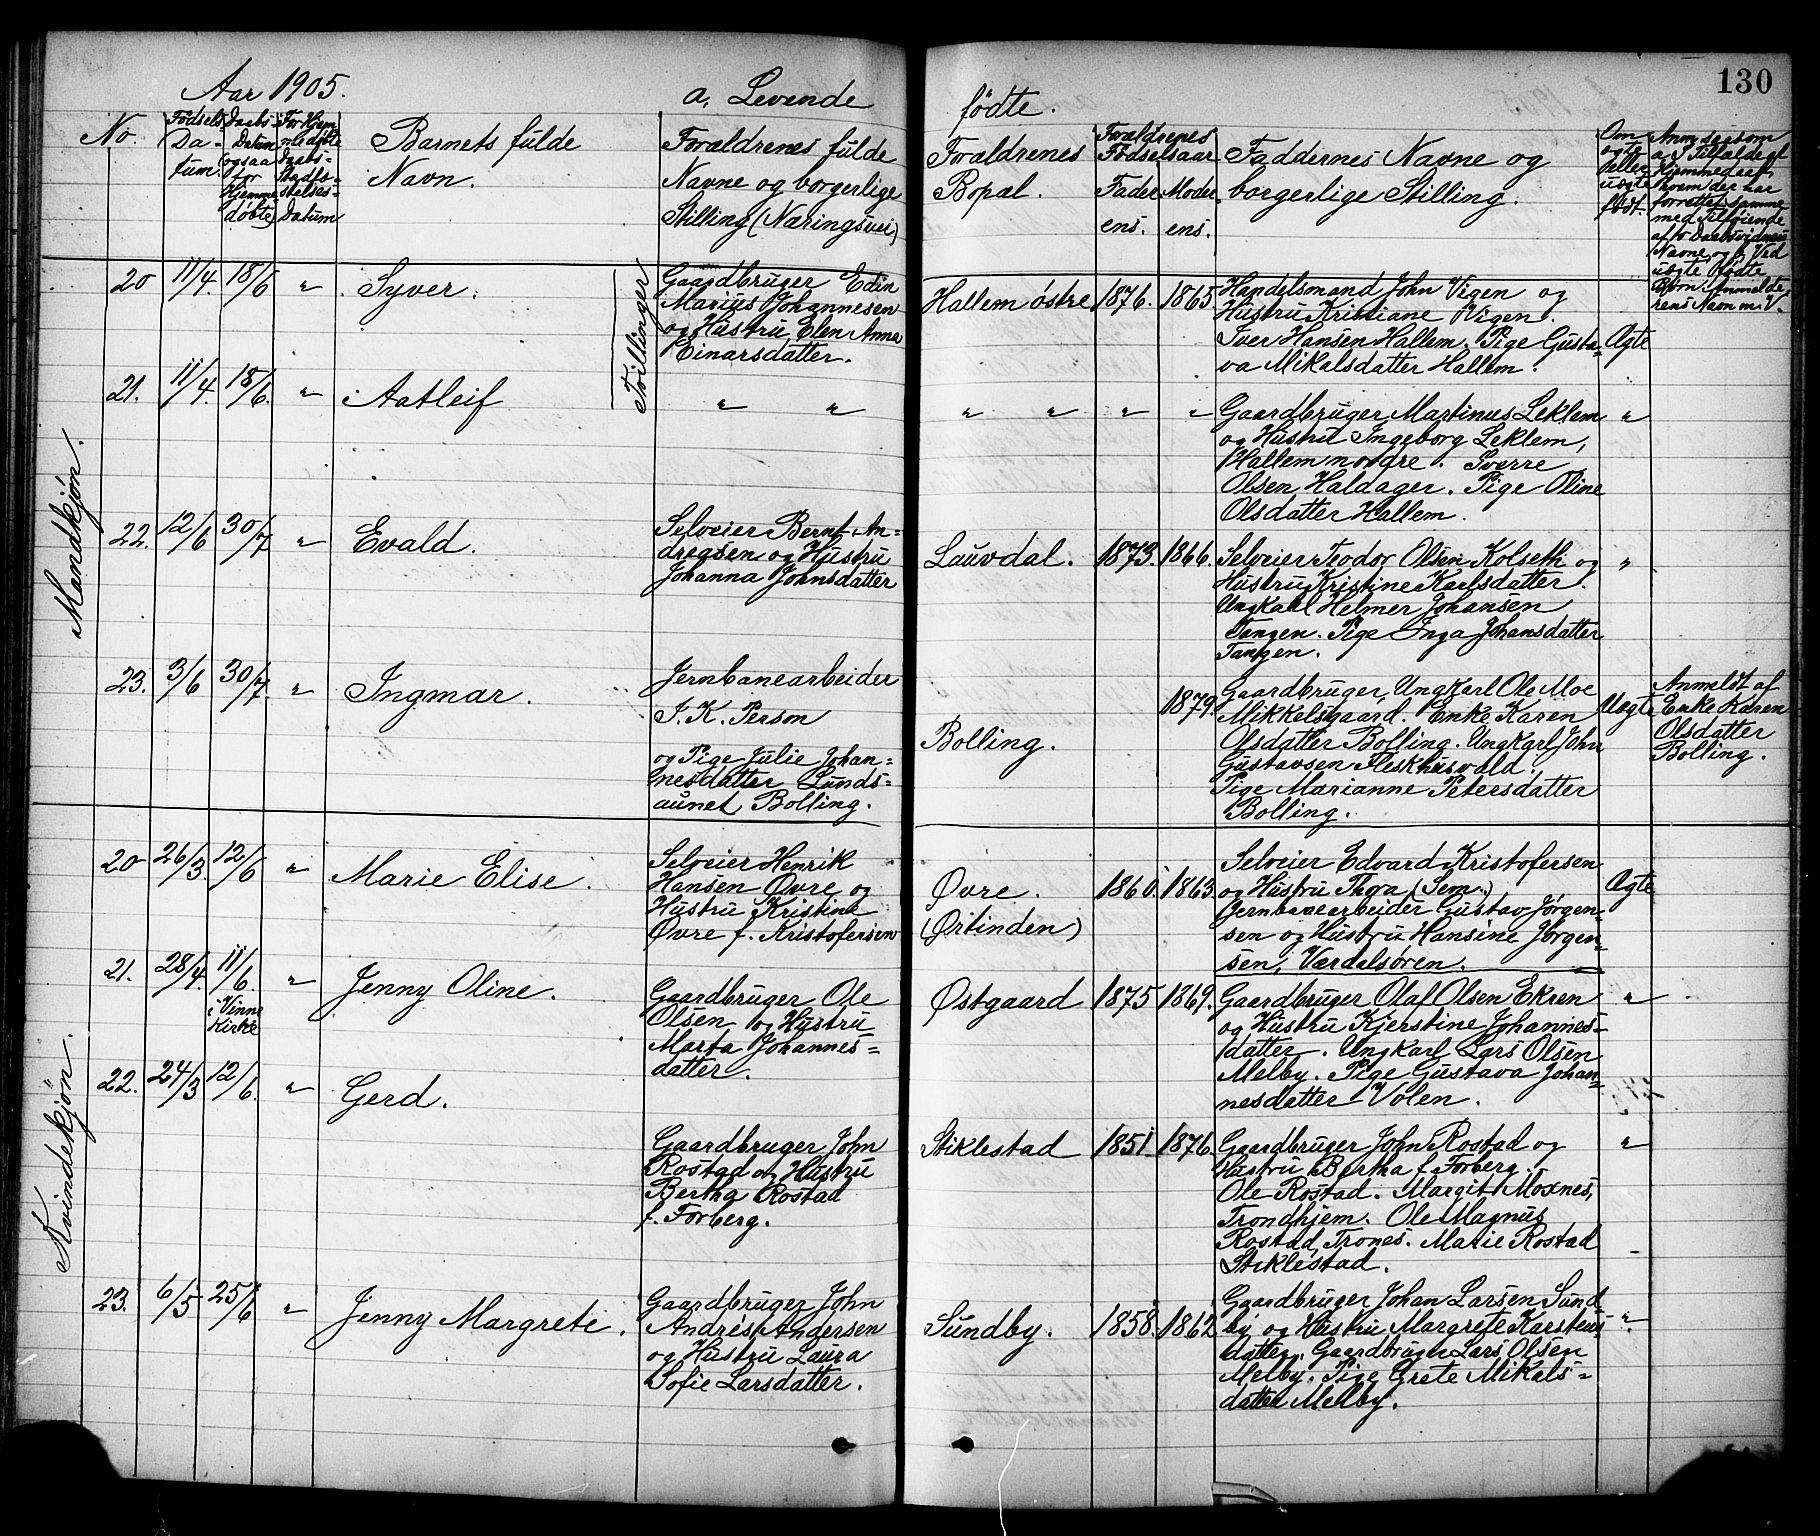 130
Aar 1905.
a, Levende
fødte.
No.
Fødsels
Da-
tum.
Daabs
Datum
(ogsaa
for
Hjemme
døbte)
For Hjem
medøbte
Daabs-
Stadfæ-
stelses-
Datum
Barnets fulde
Navn.
Forældrenes fulde
Navne og borgerlige
Stilling (Næringsvei)
Forældrenes
Bopæl.
Forældrenes
Fødselsaar
Fader
ens.
Moder
ens.
Faddernes Navne og
borgerlige Stilling.
Om
ægte
eller
uægte
født.
Mandkjøn.
20 11/4. 18/6 " Syver.
Tvillinger
Gaardbruger Edin
Marius Johannesen
og Hustru Elen Anna
Einarsdatter.
Hallem østre 1876. 1865
Handelsmand John Vigen og
Hustru Kristiane Vigen.
Iver Hansen Hallem. Pige Gusta-
va Mikalsdatter Hallem.
Ægte
21. 11/4. 18/6. " Aatleif
" "
" " " "
Gaardbruger Martinus Leklem
og Hustru Ingeborg Leklem,
Hallem nordre. Sverre
Olsen Haldager. Pige Oline
Olsdatter Hallem.
"
22. 12/6 30/7 " Evald.
Selveier Bernt An-
dreasen og Hustru
Johanna Johnsdatter
Lauvdal. 1873. 1866.
Selveier Teodor Olsen Kolseth og
Hustru Kristine Karlsdatter.
Ungkarl Helmer Johansen
Tangen. Pige Inga Johansdatter
Tangen.
"
23. 3/6 30/7. " Ingmar.
Jernbanearbeider
I. K. Person
og Pige Julie Johan-
nesdatter Lunds-
aunet Bolling.
Bolling. 1879.
Gaardbruger, Ungkarl Ole Moe
Mikkelsgaard. Enke Karen
Olsdatter Bolling. Ungkarl John
Gustavsen Fleskhusvald.
Pige Marianne Petersdatter
Bolling.
Uægte
Anmeldt af
Enke Karen
Olsdatter
Bolling.
Kvindekjøn.
20 26/3. 12/6 " Marie Elise.
Selveier Henrik
Hansen Øvre og
Hustru Kristine
Øvre f. Kristofersen
Øvre.
(Ørtinden)
1860. 1863.
Selveier Edvard Kristofersen
og Hustru Thora (Sem.)
Jernbanearbeider Gustav Jørgen-
sen og Hustru Hansine Jørgen-
sen, Værdalsøren.
Ægte
21. 28/4. 11/6. " Jenny Oline.
i Vinne
Kirke
Gaardbruger Ole
Olsen og Hustru
Marta Johannes-
datter.
Østgaard 1875 1869.
Gaardbruger Olaf Olsen Ekren
og Hustru Kjerstine Johannes-
datter. Ungkarl Lars Olsen
Melby. Pige Gustava Johan-
nesdatter Volen.
"
22. 24/3 12/6. " Gerd.
Gaardbruger John
Rostad og Hustru
Bertha Rostad
f. Forberg.
Stiklestad 1851. 1876.
Gaardbruger John Rostad og
Hustru Bertha f. Forberg.
Ole Rostad. Margit Moxnes,
Trondhjem. Ole Magnus
Rostad, Trones. Marie Rostad
Stiklestad.
"
23. 6/5 25/6 " Jenny Margrete.
Gaardbruger John
Andreas Andersen
og Hustru Laura
Sofie Larsdatter.
Sundby. 1858. 1862
Gaardbruger Johan Larsen Sund-
by og Hustru Margrete Karstens-
datter. Gaardbruger Lars Olsen
Melby. Pige Grete Mikals-
datter Melby.
"